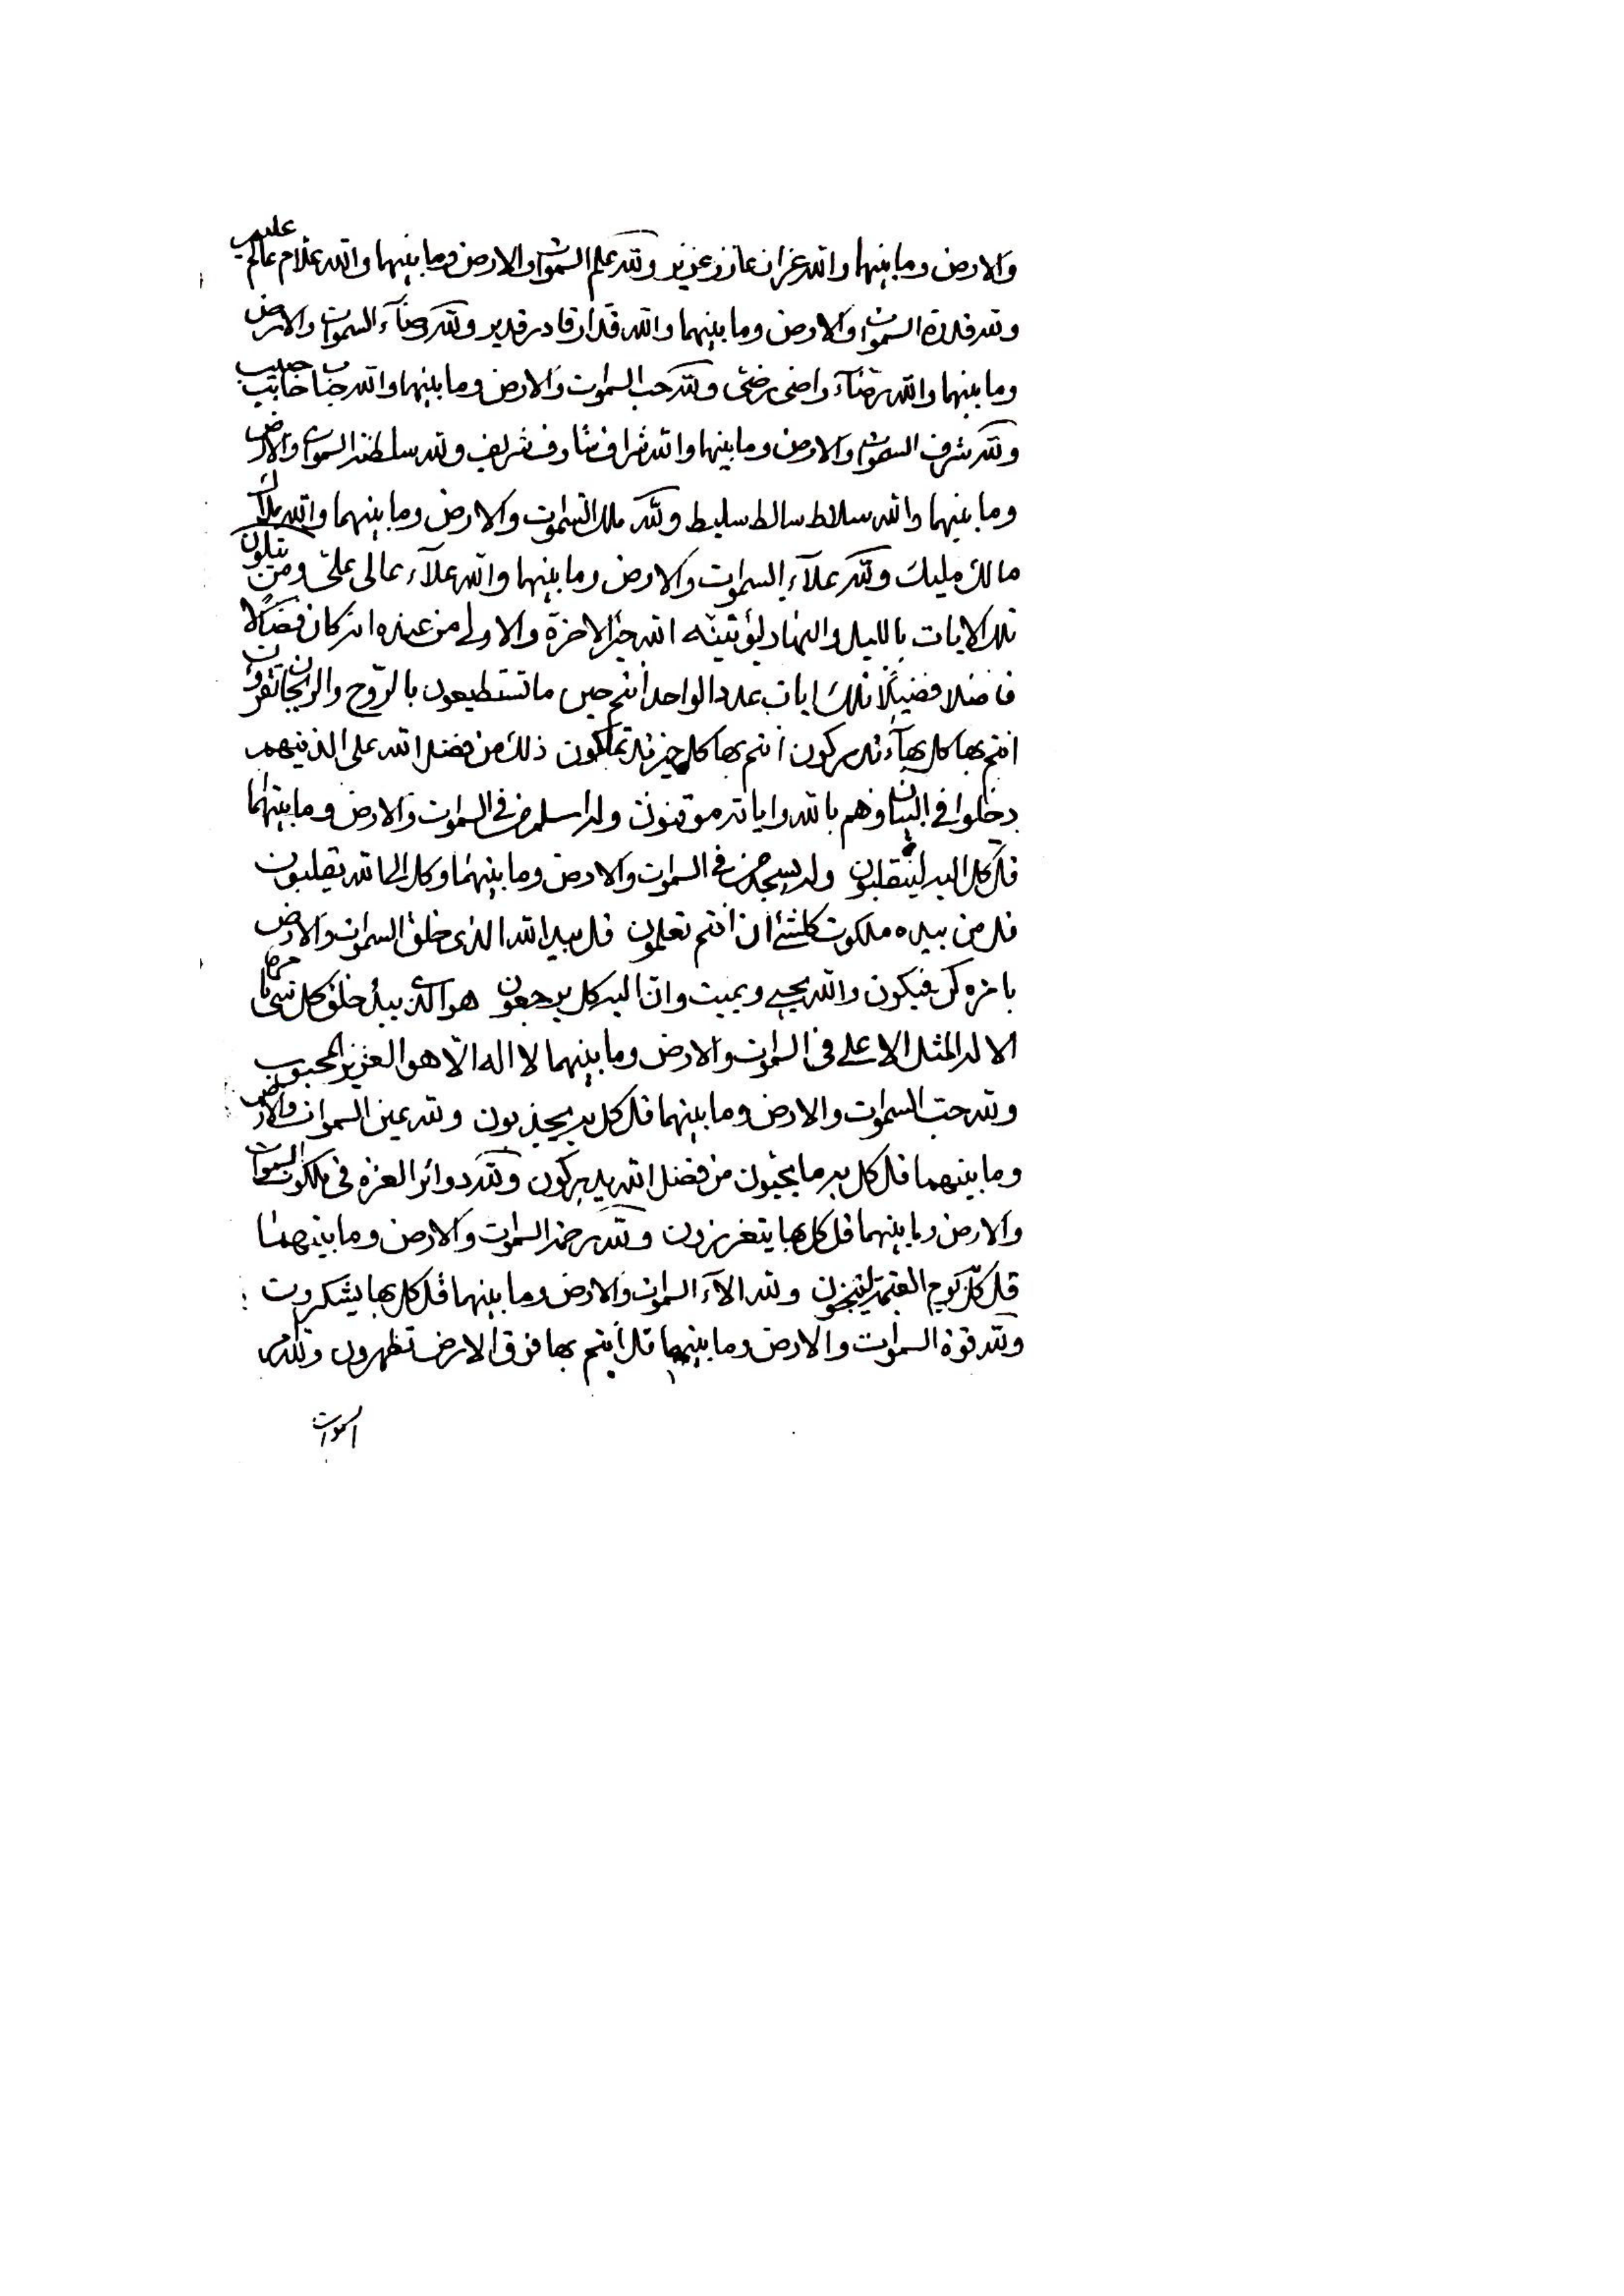 والارض وما بينهما والله عزان عازز عزيز ولله علم السموات والارض وما بينهما والله علام عالم عليم
ولله قدرة السموات والارض وما بينهما والله قدار قادر قدير ولله رضآء السموات والارض
وما بينهما والله رضآء راضى رضى ولله حب السموات والارض وما بينهما والله حباب حابب حبيب
ولله شرف السموات والارض وما بينهما والله شراف شارف شريف ولله سلطنة السموات والارض
وما بينهما والله سلاط سالط سليط ولله ملك السموات والارض وما بينهما والله ملاك
مالك مليك ولله علآء السموات والارض وما بينهما والله علآء عالى على ومن يتلون
تلك الايات بالليل والنهار ليؤتينه الله خير الاخرة والاولى من عنده انه كان فضالا
فاضلا فضيلا تلك ايات عدد الواحد انتم حين ما تستطيعون بالروح والريحان تقرؤن
انتم بها كل بهآء تدركون انتم بها كل خير تتملكون ذلك من فضل الله على الذينهم
دخلوا في البيان وهم بالله واياته موقنون وله اسلم من في السموات والارض وما بينهما
قل كل اليه لينقلبون وله يسجد من في السموات والارض وما بينهما وكل الى الله يقلبون
قل من بيده ملكوت كلشئ ان انتم تعلمون قل بيد الله الذى خلق السموات والارض
بامره كن فيكون والله يحيي ويميت وان اليه كل يرجعون هو الذى يبدء خلق كل شئ بامره
الا له المثل الاعلى في السموات والارض وما بينهما لا اله الا هو العزيز المحبوب
ولله حب السموات والارض وما بينهما قل كل به ينجذبون ولله عين السموات والارض
وما بينهما قل كل به ما يحبون من فضل الله يدركون ولله دوائر العزة في ملكوت السموات
والارض وما بينهما قل كل بها يتعززون ولله رحمة السموات والارض وما بينهما
قل كل يوم القيمة لينجون ولله الآء السموات والارض وما بينهما قل كل بها يشكرون
ولله قوة السموات والارض وما بينهما قل انتم بها فوق الارض تظهرون ولله
السموات